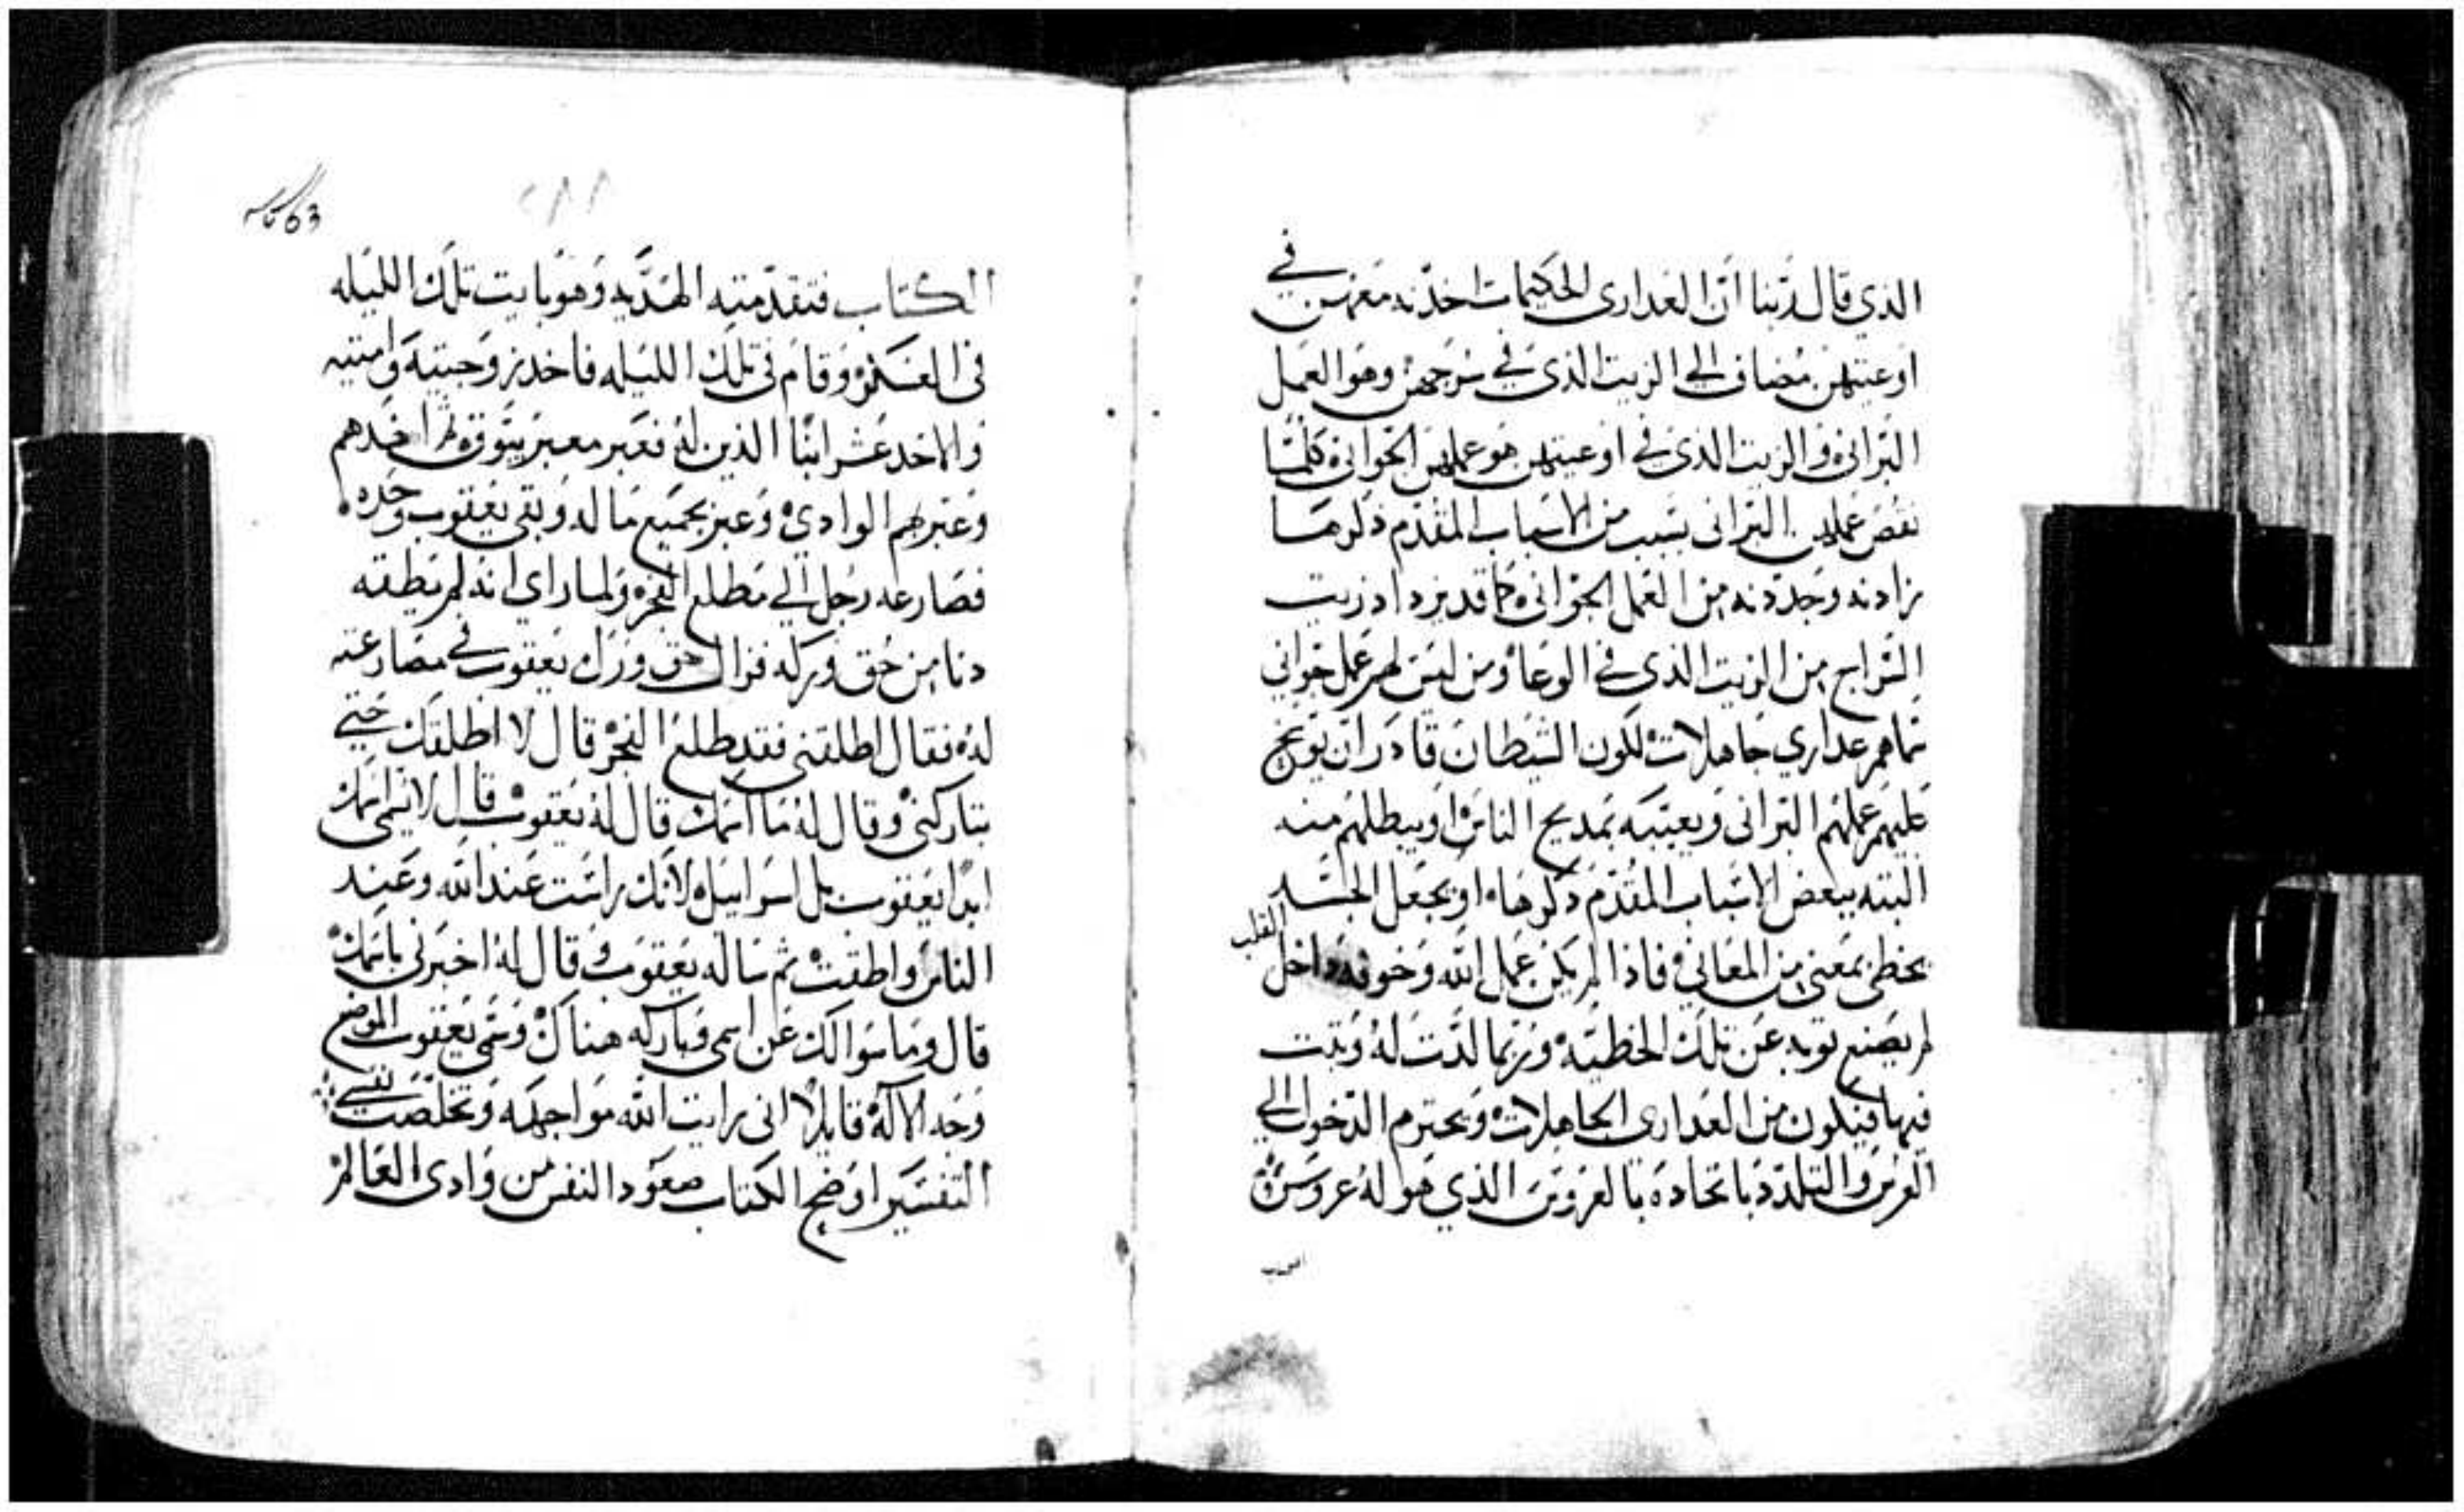 الذي قال ربنا ان العدارى الحكيمات اخدنه معهن في
اوعيتهن مضاف الى الزيت الذي في سرجهن وهو العمل
البراني والزيت الذي في اوعيتهن هو عملهن الجواني كلما
نقص عملهن البراني بسبب من الاسباب المقدم ذكرها
زادنه وجددنه من العمل الجواني كما قد يزداد زيت
السراج من الزيت الذي في الوعا ومن ليس لهم عمل جواني
تماهم عداري جاهلات لكون الشيطان قادر ان يوبخ
عليهم عملهم البراني ويعيبه بمديح الناس او يبطلهم منه
البته ببعض الاسباب المقدم ذكرها او يجعل الجسد
يخطى بمعنى من المعاني فاذا لم يكن عمل الله وخوفه داخل القلب
لم يصنع توبه عن تلك الخطيه وربما لدت له وبت
فيها فيكون من العداري الجاهلات ويحترم الدخول الي
العرس والتلدد باتحاده بالعروس الذي هو له عروس
63
٢٨٨
الكتاب فتقدمته الهديه وهو بايت تلك الليله
في العسكر وقام في تلك الليله فاخد زوجتيه وامتيه
والاحد عشر ابنا الذين له فعبر معبر يبوق ثم اخدهم
وعبر بهم الوادي وعبر بجميع ما له وبقى يعقوب وحده
فصارعه رجل الي مطلع الفجر ولما راى انه لم يطقه
دنا من حق وركه فزال حق ورك يعقوب في مصارعته
له فقال اطلقني فقد طلع الفجر قال لا اطلقك حتى
تباركني وقال له ما اسمك قال له يعقوب قال لا يسمى اسمك
ابدا يعقوب بل اسراييل لانك راست عند الله وعند
الناس واطقت ثم ساله يعقوب وقال له اخبرني باسمك
قال وما سوالك عن اسمى وباركه هناك وسمى يعقوب الموضع
وجه الاله قايلا اني رايت الله مواجهه وتخلصت نفسي
التفسير اوضح الكتاب صعود النفس من وادي العالم